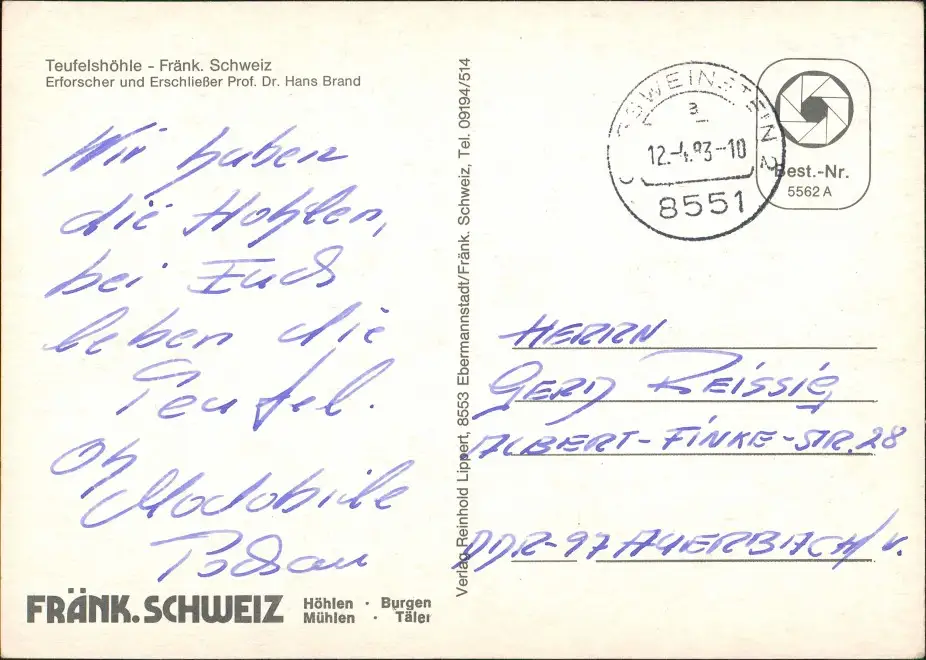 Teufelshöhle - Fränk. Schweiz
Erforscher und Erschließer Prof. Dr. Hans Brand
Wir haben
die Hohlen,
bei Euch
leben die
Teufel.
FRÄNK. SCHWEIZ
Höhlen · Burgen
Mühlen · Täler
Verlag Reinhold Lippert, 8553 Ebermannstadt/Fränk. Schweiz, Tel. 09194/514
12.-4.83-10
8551
Best.-Nr.
5562 A
HERRN
GERD REISSIG
ALBERT-FINKE-STR. 28
DDR-97 AUERBACH/V.